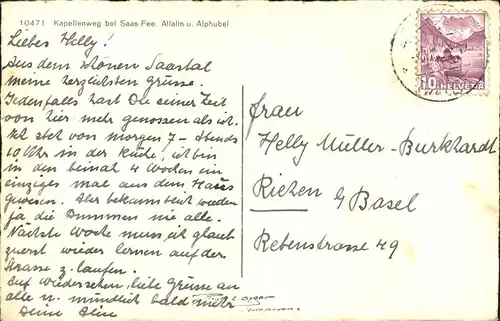 10471 Kapellenweg bei Saas-Fee. Allalin u. Alphubel
Liebes Helly!
Aus dem schönen Saastal
meine herzlichsten Grüsse.
Jedenfalls hast Du seiner Zeit
von hier mehr genossen als ich.
Ich steh von morgen 7 - Abends
10 Uhr in der Küche, ich bin
in den beinah 4 Wochen ein
einziges mal aus dem Haus
gewesen. Aber bekanntlich werden
ja die Dummen nie alle.
Nächste Woche muss ich glaub
zuerst wieder lernen auf der
Strasse z. laufen.
Auf Wiedersehen, liebe Grüsse an
alle u. mündlich bald mehr
Deine
Frau
Helly Müller-Burkhardt
Riehen b/Basel
Rebenstrasse 49
10 HELVETIA